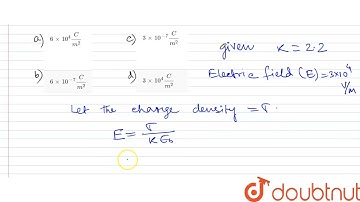 a) 6 × 10⁴ C/m² c) 3 × 10⁻⁷ C/m² given K = 2.2
b) 6 × 10⁻⁷ C/m² d) 3 × 10⁴ C/m² Electric field (E) = 3×10⁴ V/m
Let the charge density = σ.
E = σ/Kε₀
doubtnut